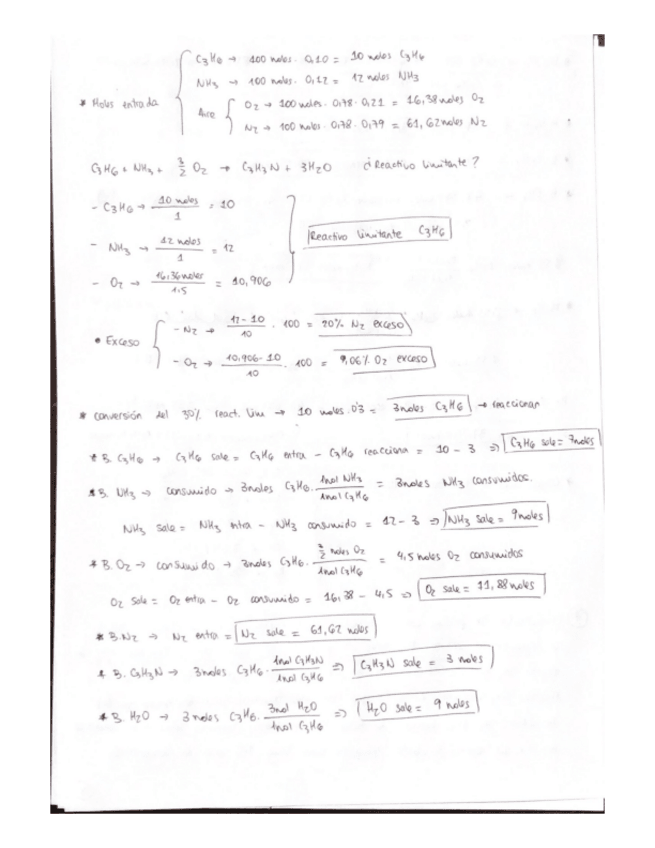 C₃H₆ → 100 moles · 0,10 = 10 moles C₃H₆
NH₃ → 100 moles · 0,12 = 12 moles NH₃
* Moles entrada
Aire
O₂ → 100 moles · 0,78 · 0,21 = 16,38 moles O₂
N₂ → 100 moles · 0,78 · 0,79 = 61,62 moles N₂
C₃H₆ + NH₃ + 3/2 O₂ → C₃H₃N + 3H₂O ¿Reactivo limitante?
- C₃H₆ → 10 moles/1 = 10
- NH₃ → 12 moles/1 = 12
Reactivo limitante C₃H₆
- O₂ → 16,36 moles/1.5 = 10,906
• Exceso
- N₂ → 12-10/10 · 100 = 20% N₂ exceso
- O₂ → 10,906-10/10 · 100 = 9,06% O₂ exceso
* conversión del 30% react. lim → 10 moles · 0'3 = 3 moles C₃H₆ → reaccionan
* B. C₃H₆ → C₃H₆ sale = C₃H₆ entra - C₃H₆ reacciona = 10 - 3 ⇒ C₃H₆ sale = 7 moles
* B. NH₃ → consumido → 3 moles C₃H₆ · 1mol NH₃/1mol C₃H₆ = 3 moles NH₃ consumidos.
NH₃ sale = NH₃ entra - NH₃ consumido = 12 - 3 ⇒ NH₃ sale = 9 moles
* B. O₂ → consumido → 3 moles C₃H₆ · 3/2 moles O₂/1mol C₃H₆ = 4,5 moles O₂ consumidos
O₂ sale = O₂ entra - O₂ consumido = 16,38 - 4,5 ⇒ O₂ sale = 11,88 moles
* B. N₂ → N₂ entra = N₂ sale = 61,62 moles
* B. C₃H₃N → 3 moles C₃H₆ · 1mol C₃H₃N/1mol C₃H₆ ⇒ C₃H₃N sale = 3 moles
* B. H₂O → 3 moles C₃H₆ · 3mol H₂O/1mol C₃H₆ ⇒ H₂O sale = 9 moles